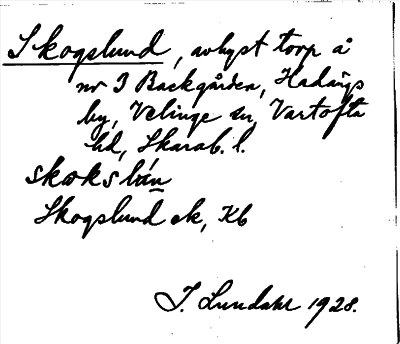 Skogslund, avhyst torp å
nr 3 Backgården, Hadängs
by, Velinge sn, Vartofta
hd, Skarab. l.
skɷkslún
Skogslund ek, Kb
J. Lundahl 1928.